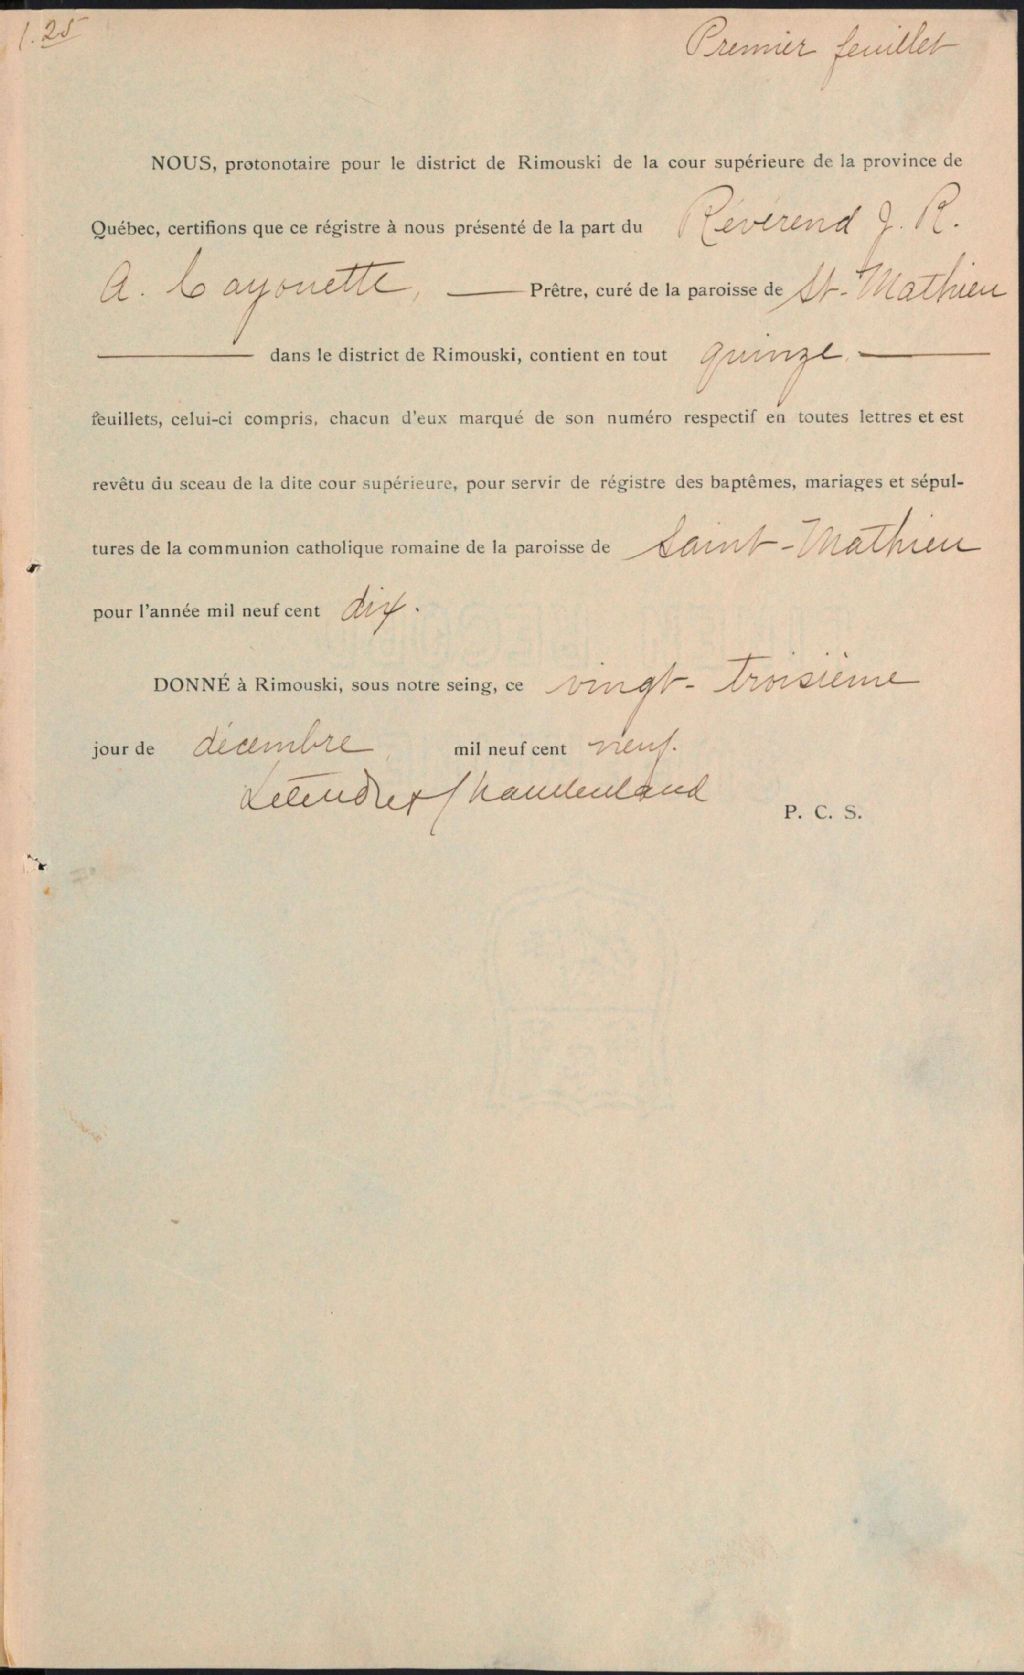 1.25
Premier feuillet
NOUS, protonotaire pour le district de Rimouski de la cour supérieure de la province de
Québec, certifions que ce régistre à nous présenté de la part du Révérend J. R.
A. Cayouette, Prêtre, curé de la paroisse de St-Mathieu
dans le district de Rimouski, contient en tout quinze
feuillets, celui-ci compris, chacun d'eux marqué de son numéro respectif en toutes lettres et est
revêtu du sceau de la dite cour supérieure, pour servir de régistre des baptêmes, mariages et sépul-
tures de la communion catholique romaine de la paroisse de Saint-Mathieu
pour l'année mil neuf cent dix.
DONNÉ à Rimouski, sous notre seing, ce vingt-troisième
jour de décembre, mil neuf cent neuf.
Letendre
P. C. S.